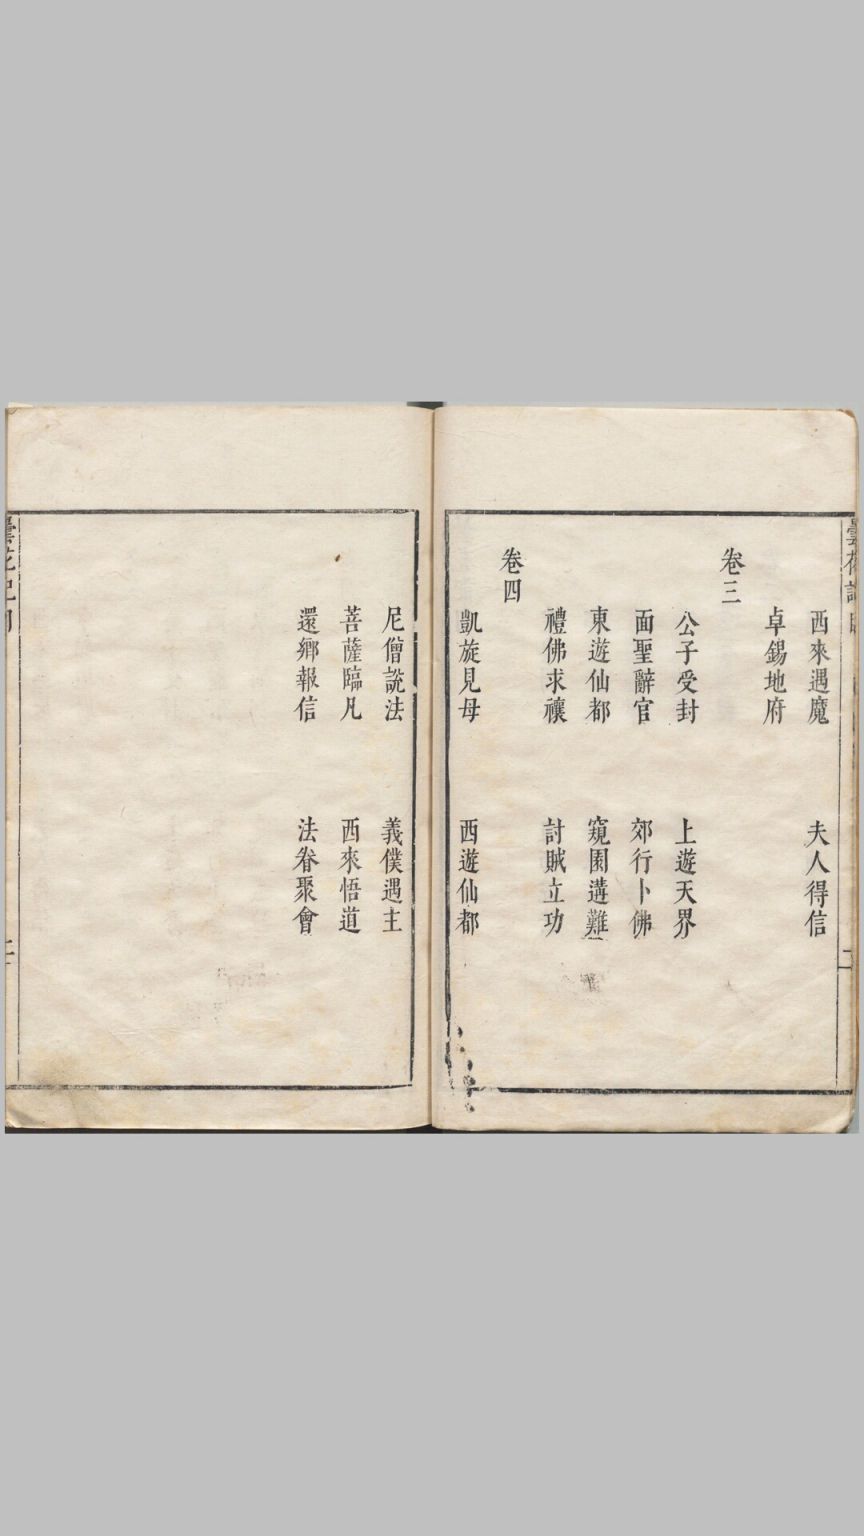 西來遇魔　夫人得信
卓錫地府
卷三
公子受封　上遊天界
面聖辭官　郊行卜佛
東遊仙都　窺園遘難
禮佛求禳　討賊立功
卷四
凱旋見母　西遊仙都
尼僧說法　義僕遇主
菩薩臨凡　西來悟道
還鄉報信　法眷聚會